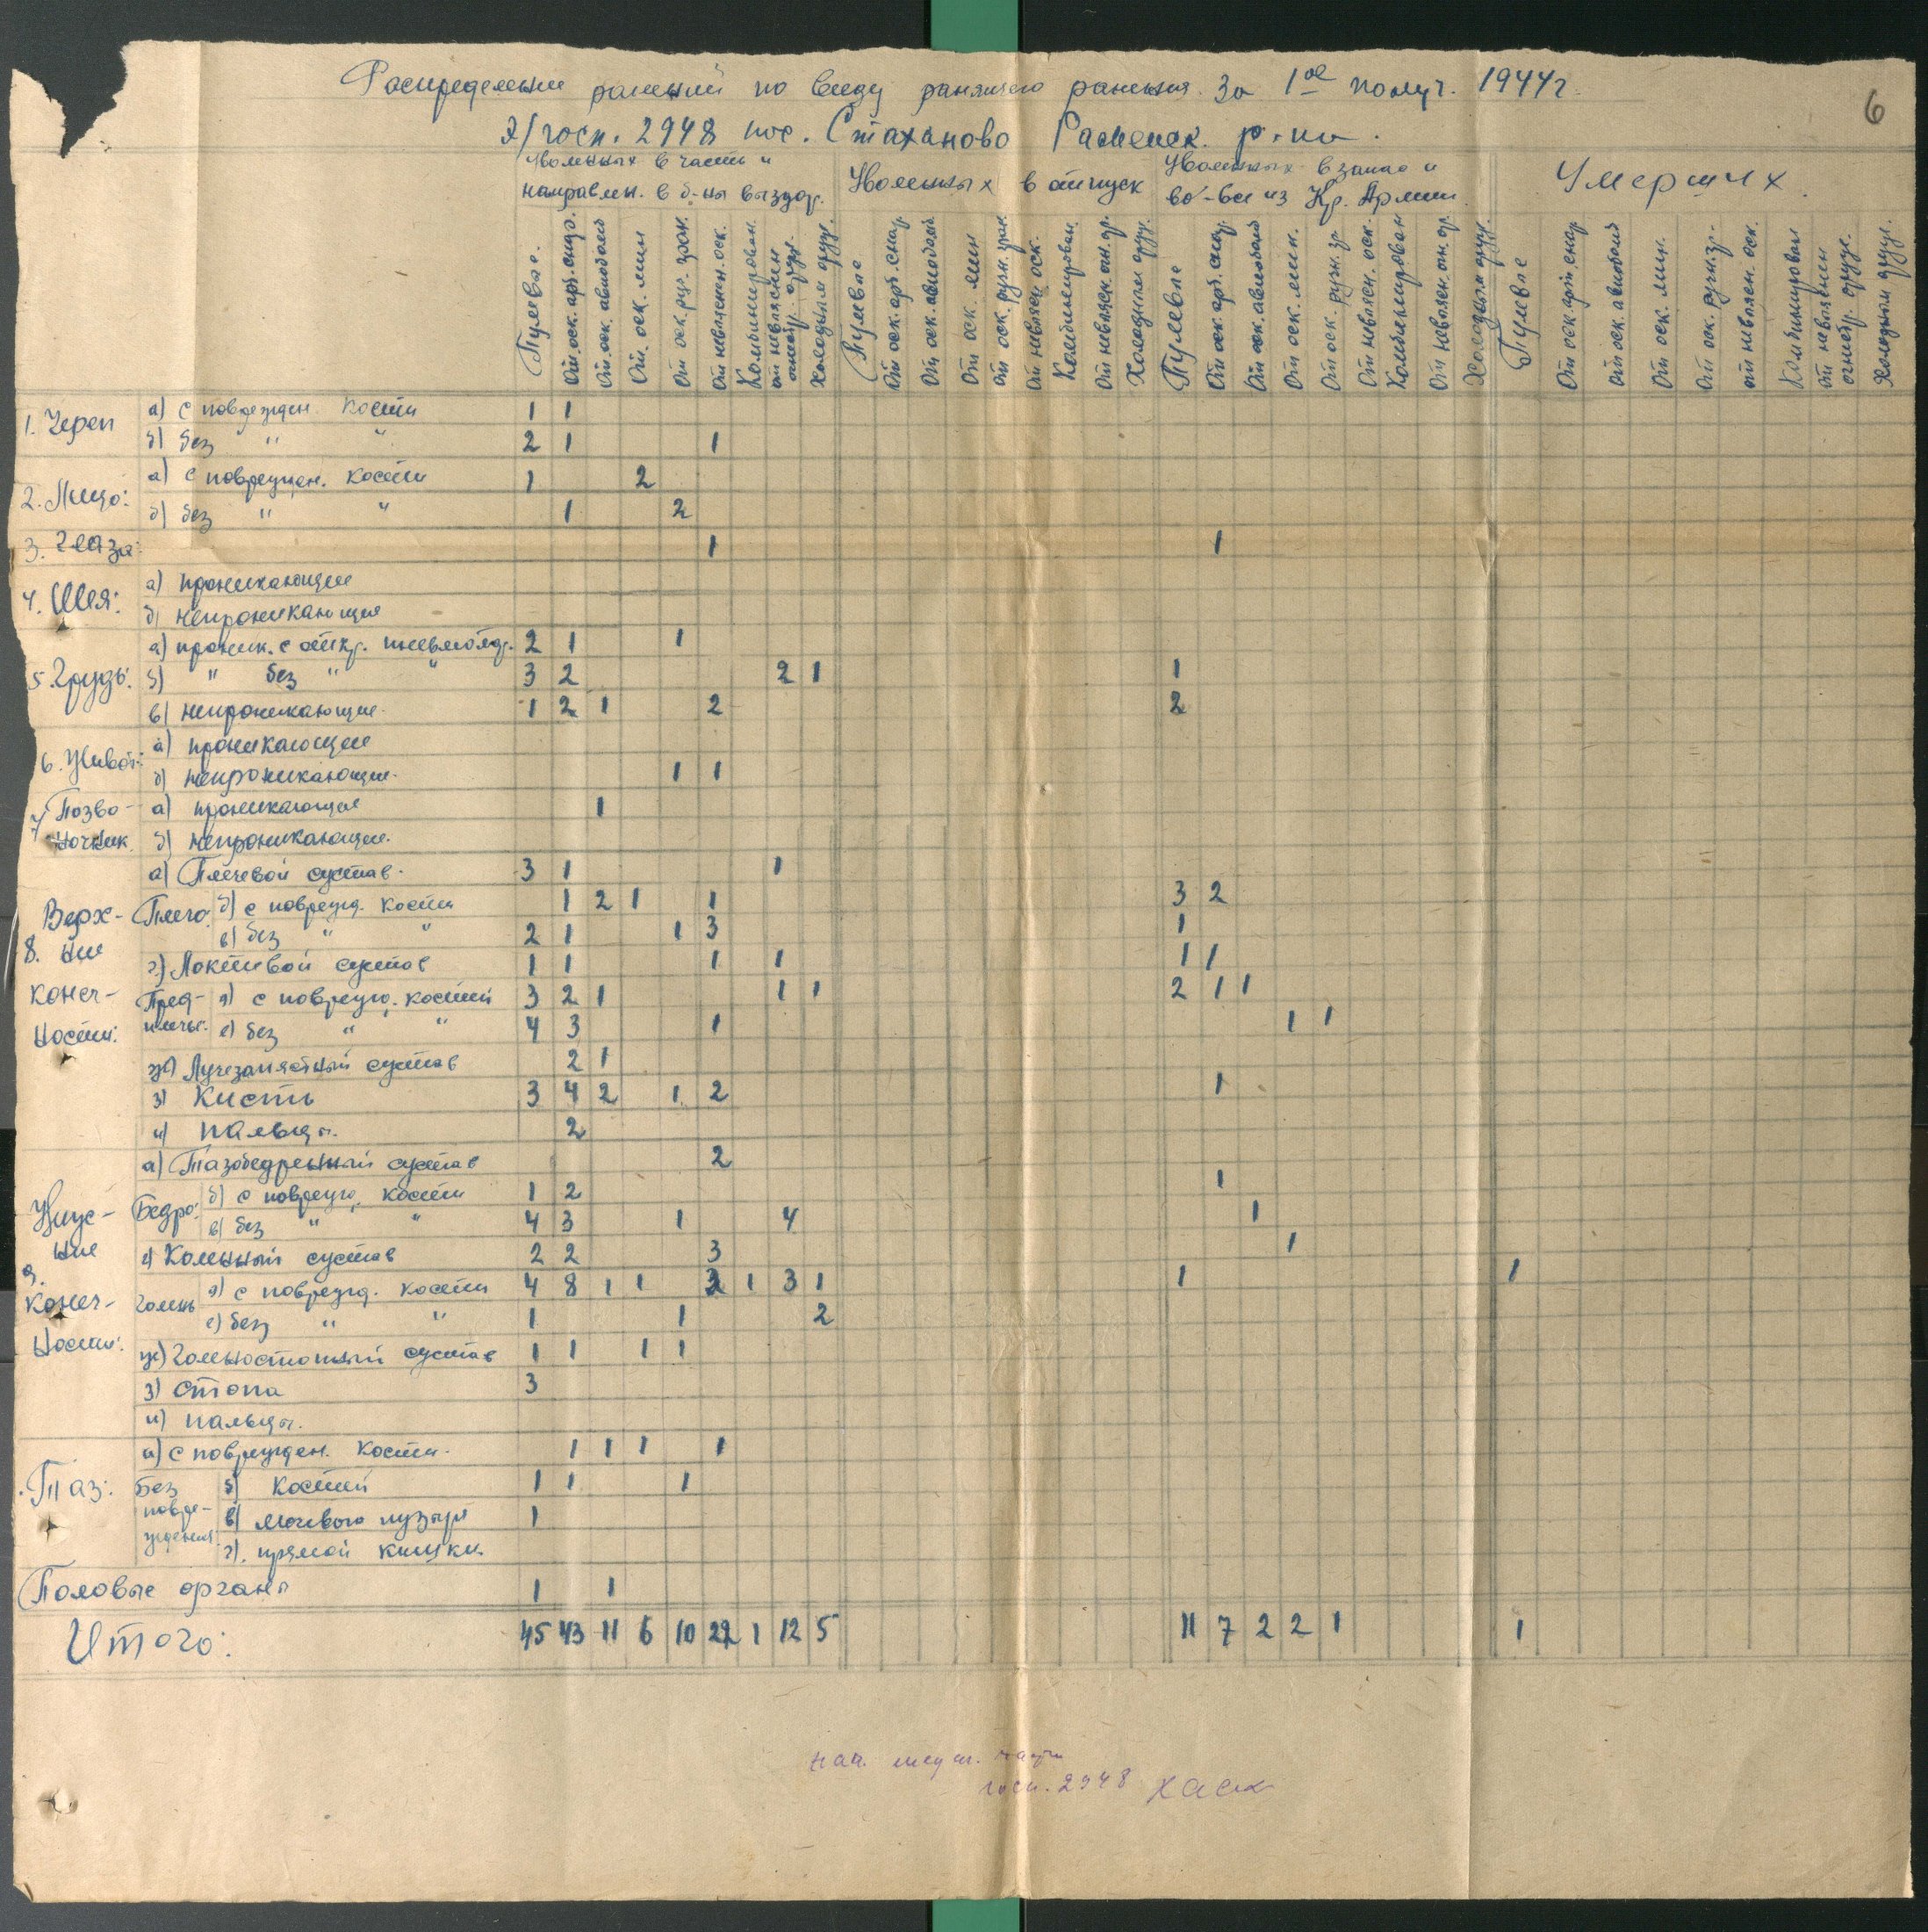 6
Распределение ранений по виду ранящего ранения за 1ое полуг. 1944г.
Э/госп. 2948 пос. Стаханово Раменск. р-на.
Уволенных в часть и направлен. в б-ны выздор.
Уволенных в отпуск
Уволенных в запас и во-все из Кр. Армии.
Умерших.
Пулевые. От оск. арт. снар. От оск. авиабомб От. оск. мин От оск. руч. гран. От невыяснен. оск. Комбинирован. от невыяснен огнестр. оруж. Холодным оруж.
Пулевые От оск. арт. снар. От оск. авиабомб От оск. мин от оск. ручн. гран. От невыясн. оск. Комбинирован. От невыясн. огн. ор. Холодным оруж.
Пулевые От оск. арт. снар. От оск. авиабомб От оск. мин. От оск. ручн. гр. От невыясн. оск. Комбинирован От невыясн. огн. ор. Холодным оруж.
Пулевые От оск. арт. снар От оск. авиабомб От оск. мин. От оск. ручн. гр. от невыясн. оск. Комбинирован от невыяснен огнестр. оруж. Холодным оруж.
1. Череп а) с поврежден. кости 1 1
б) без " " 2 1 1
2. Лицо: а) с поврежден. кости 1 2
б) без " " 1 2
3. Глаза: 1 1
4. Шея: а) проникающие
б) непроникающие
5. Грудь: а) проник. с откр. пневмотор. 2 1 1
б) " без " " 3 2 2 1 1
в) непроникающие. 1 2 1 2 2
6. Живот: а) проникающие
б) непроникающие. 1 1
7 Позво- а) проникающие 1
ночник. б) непроникающие.
8. Верхние конечности: а) Плечевой сустав. 3 1 1
Плечо: б) с поврежд. кости 1 2 1 1 3 2
в) без " " 2 1 1 3 1
г) Локтевой сустав 1 1 1 1 1 1
Предплечье: д) с поврежд. костей 3 2 1 1 1 2 1 1
е) без " " 4 3 1 1 1
ж) Лучезапястный сустав 2 1
з) Кисть 3 4 2 1 2 1
и) пальцы. 2
9. Нижние конечности: а) Тазобедренный сустав 2
Бедро: б) с поврежд. кости 1 2 1
в) без " " 4 3 1 4 1
г) Коленный сустав 2 2 3 1
Голень д) с поврежд. кости 4 8 1 1 3 1 3 1 1 1
е) без " " 1 1 2
ж) Голеностопный сустав 1 1 1 1
з) стопа 3
и) пальцы.
Таз: а) с поврежден. кости. 1 1 1 1
Без повреждения: б) костей 1 1 1
в) мочевого пузыря 1
г). прямой кишки.
Половые органы 1 1
Итого: 45 43 11 6 10 22 1 12 5 11 7 2 2 1 1
нач. мед. части
госп. 2948